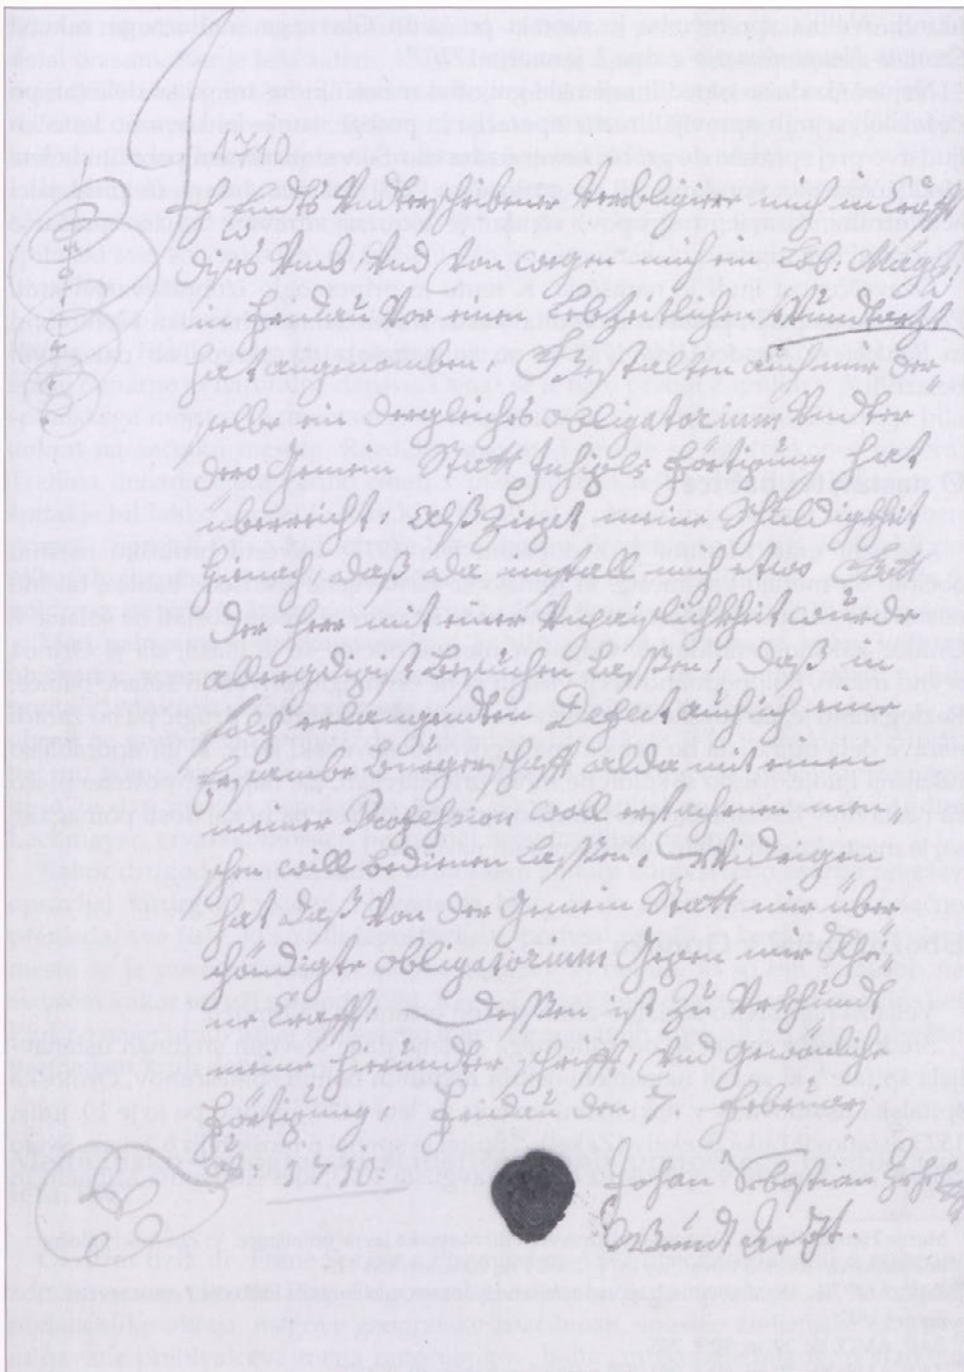 1710
Ich Endts Undterschribener Verobligiere mich in Crafft
dises Umb, und von wegen mich ein Lob: Mag:
in Fridau vor einen Lebzeitlichen Wundtarzt
hat angenomben, Gestalten auch mir der
selbe ein dergleiches obligatorium Undter
dero Gemein Statt Insigls Förtigung hat
überreicht: Alß ziget meine Schuldigkheit
hinach, daß da imfall mich etwo Gott
der Herr mit einer Unpäßlichkheit wurde
allergdigist besuchen lassen, daß in
solch erlangendten Defect auch ich eine
Ersambe Burgerschafft alda mit einen
meiner Profession woll erfahrnen men
schen will bedienen lassen. Widrigen
hat daß von der Gemein Statt mir über
händigte obligatorium Gegen mir Khei
ne Crafft. Dessen ist zu Urkhundt
meine hierundter schrifft, und gewönliche
Förtigung Fridau den 7 Februar
Ao 1710.
Johan Sebastian
Wundt Arzt